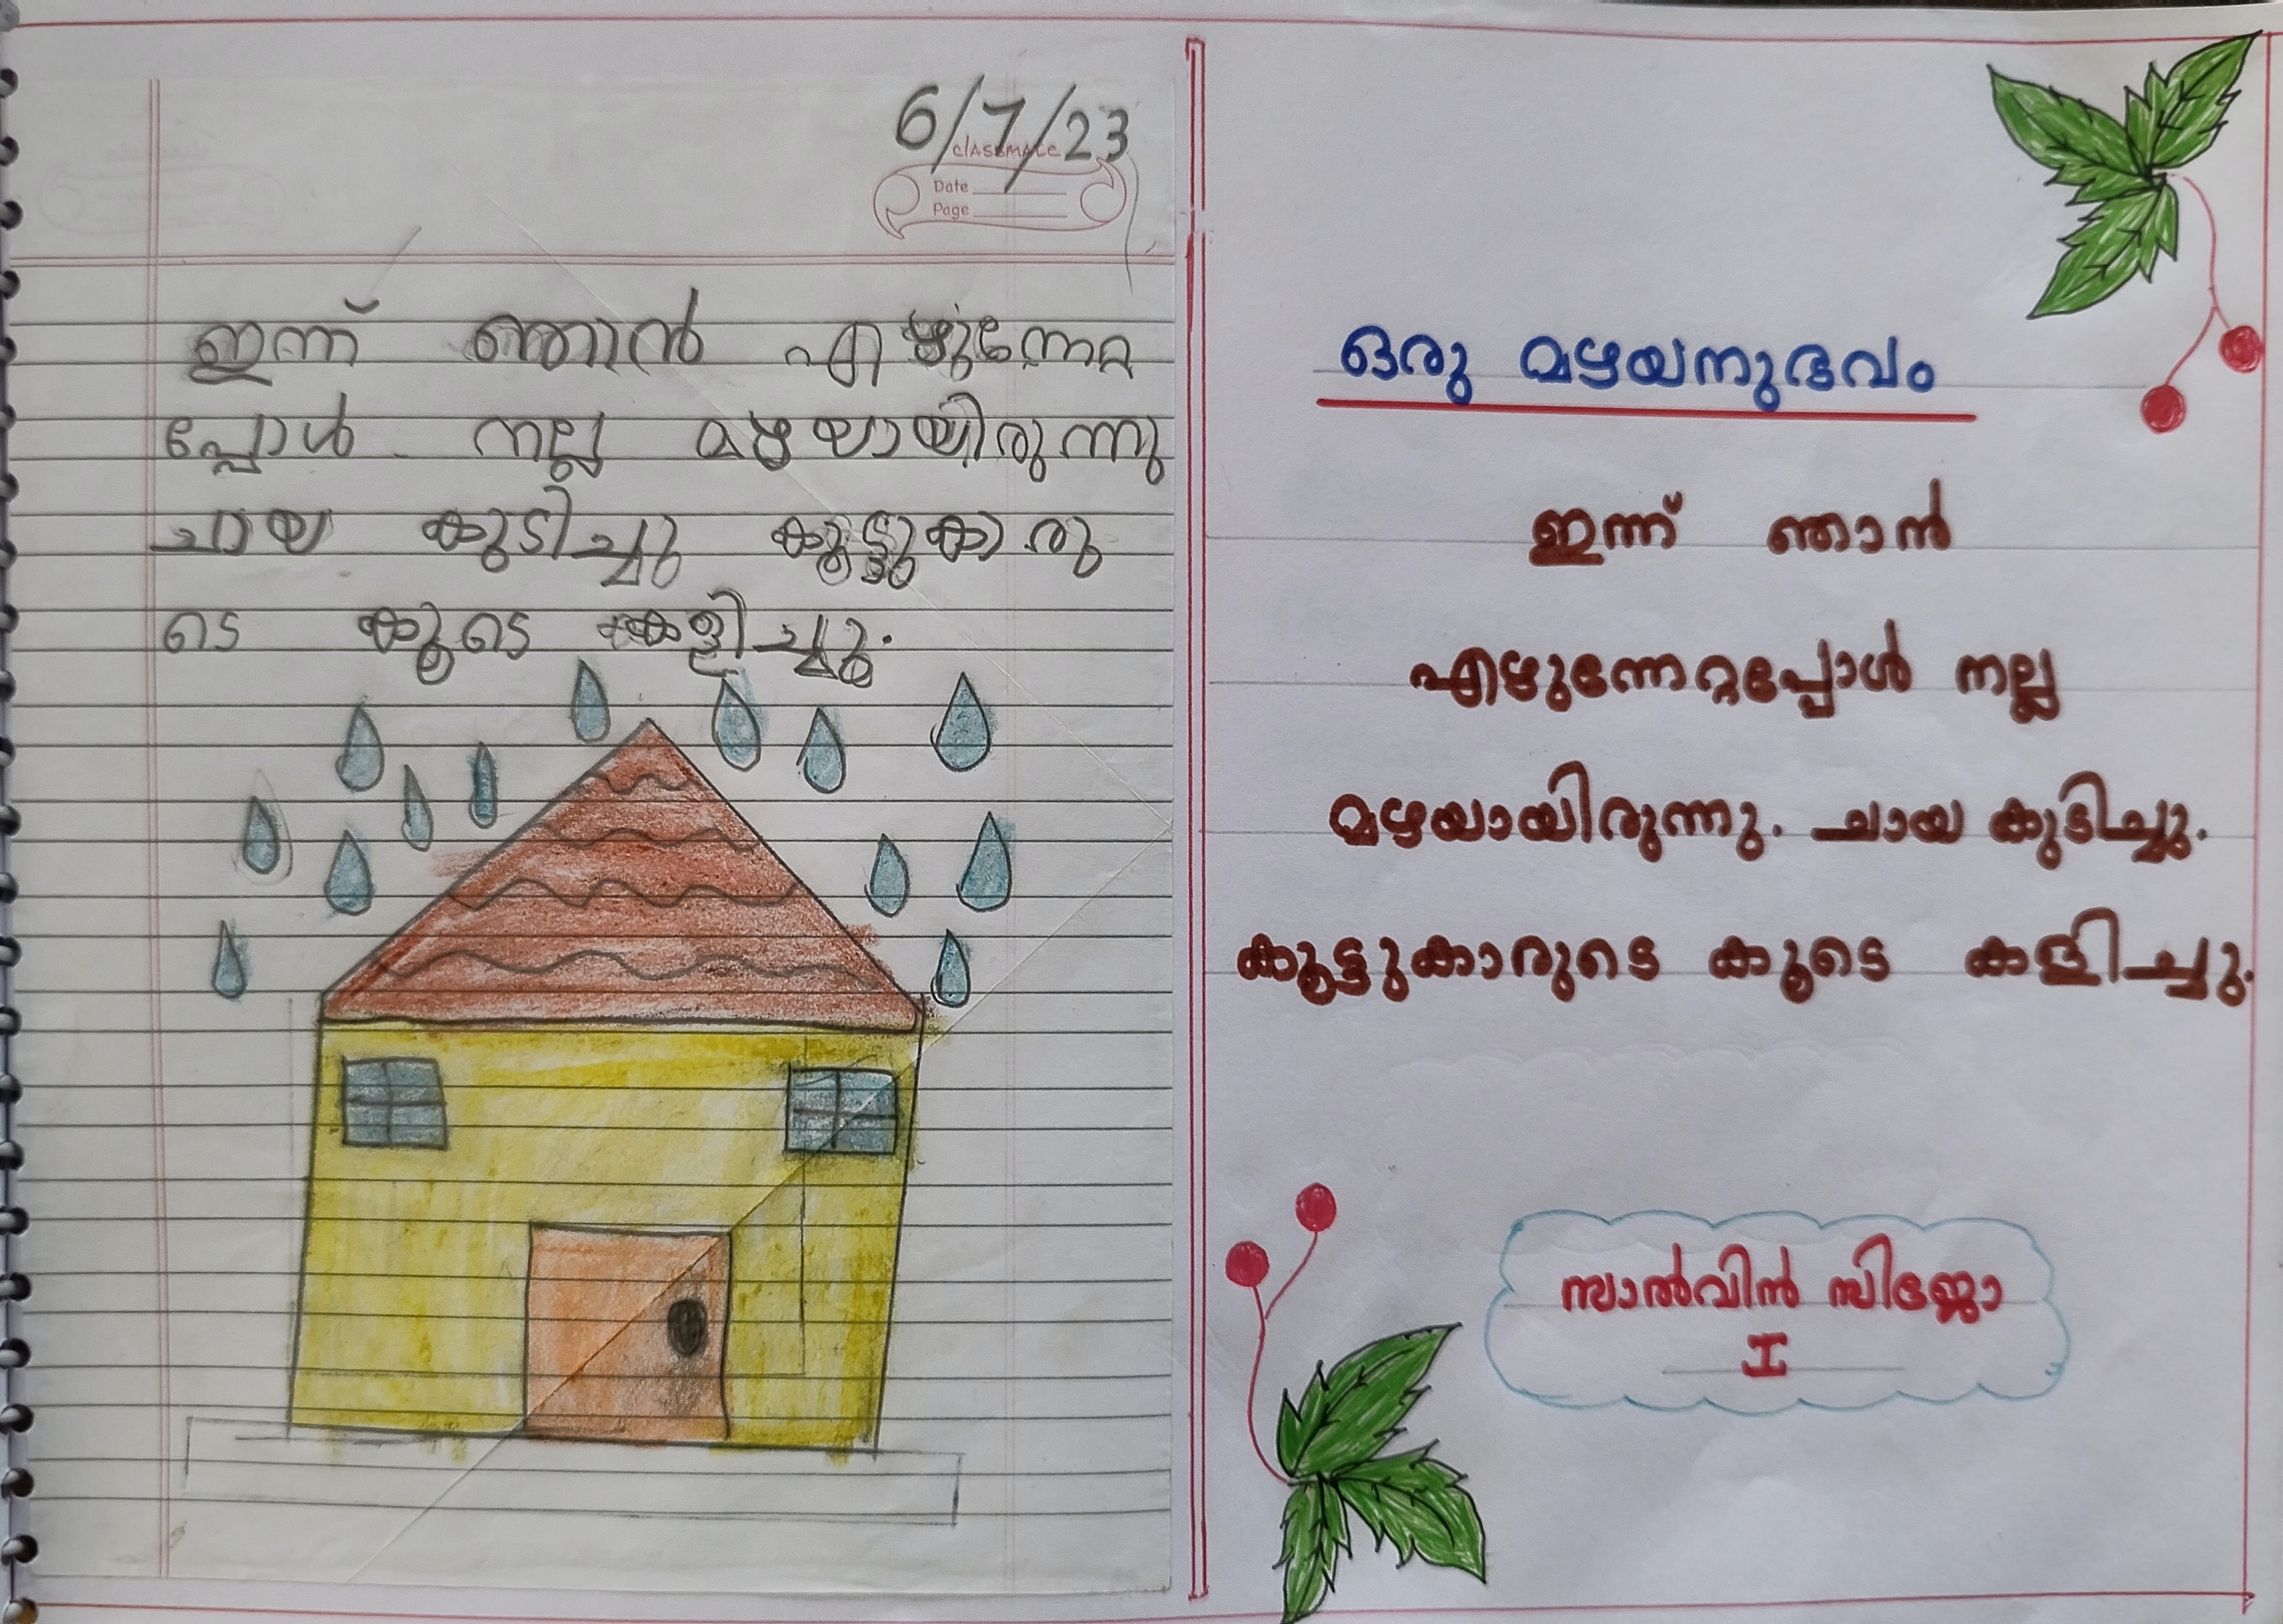 6/7/23
classmate
Date
Page
ഇന്ന് ഞാൻ എഴുന്നേറ
പ്പോൾ നല്ല മഴയായിരുന്നു
ചായ കുടിച്ചു കൂട്ടുകാരു
ടെ കൂടെ കളിച്ചു.
ഒരു മഴയനുഭവം
ഇന്ന് ഞാൻ
എഴുന്നേറ്റപ്പോൾ നല്ല
മഴയായിരുന്നു. ചായ കുടിച്ചു.
കൂട്ടുകാരുടെ കൂടെ കളിച്ചു.
സാൽവിൻ സിജോ
I